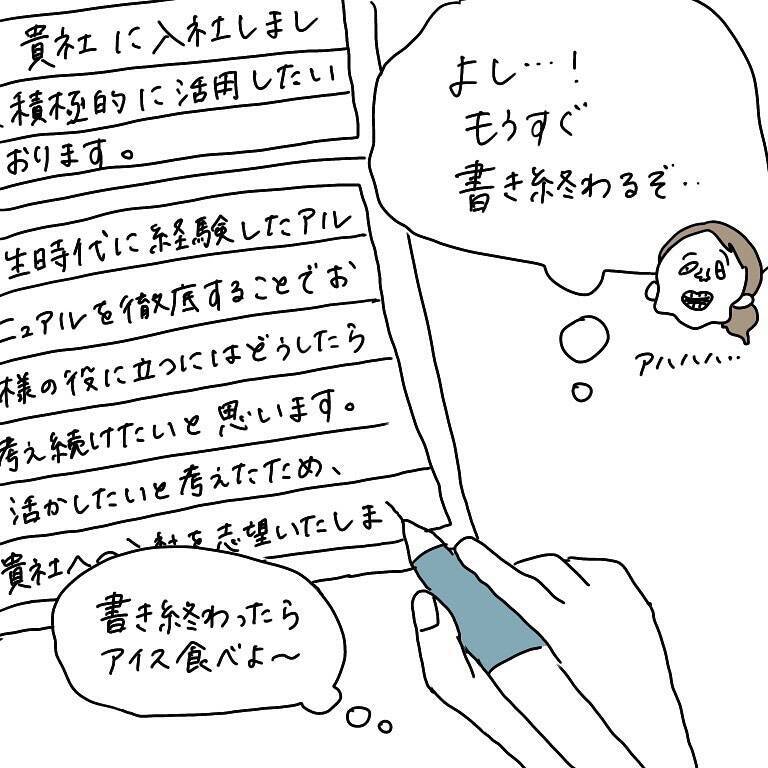 貴社に入社しまし
積極的に活用したい
おります。
よし…！
もうすぐ
書き終わるぞ‥
アハハハ‥
生時代に経験したアル
ニュアルを徹底することでお
様の役に立つにはどうしたら
考え続けたいと思います。
活かしたいと考えたため、
貴社への入社を志望いたしま
書き終わったら
アイス食べよ〜